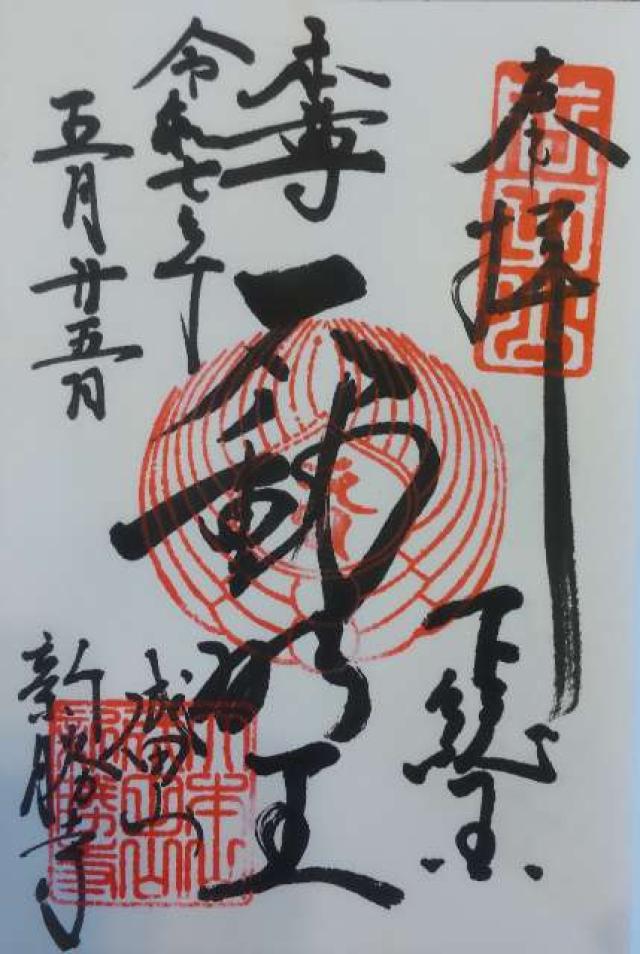 奉拝
下総国
本尊
不動明王
令和七年
五月廿五日
成田山
新勝寺